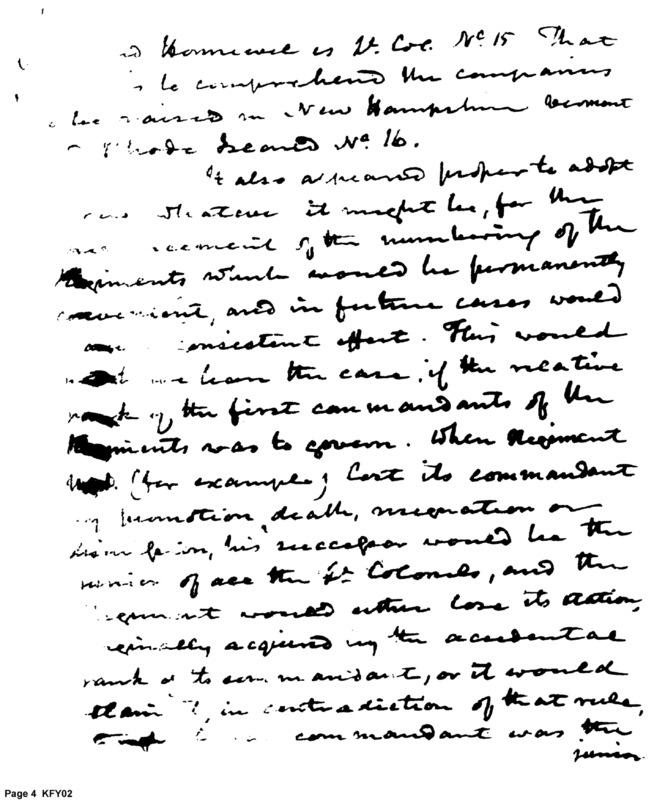 is Lt. Col. No. 15 That
comprehend the companies
be raised in New Hampshire Vermont
Rhode Island No. 16.
It also appeared proper to adopt
whatever it might be, for the
of the numbering of the
Regiments which would be permanently
convenient, and in future cases would
consistent effect. This would
been the case, if the relative
rank of the first commandants of the
Regiments was to govern. When Regiment
(for example) lost its commandant
by promotion, death, resignation or
his successor would be the
junior of all the Lt. Colonels, and the
would either lose its station,
originally acquired by the accidental
rank of its commandant, or it would
in contradiction of that rule,
commandant was the
junior
Page 4 KFY02